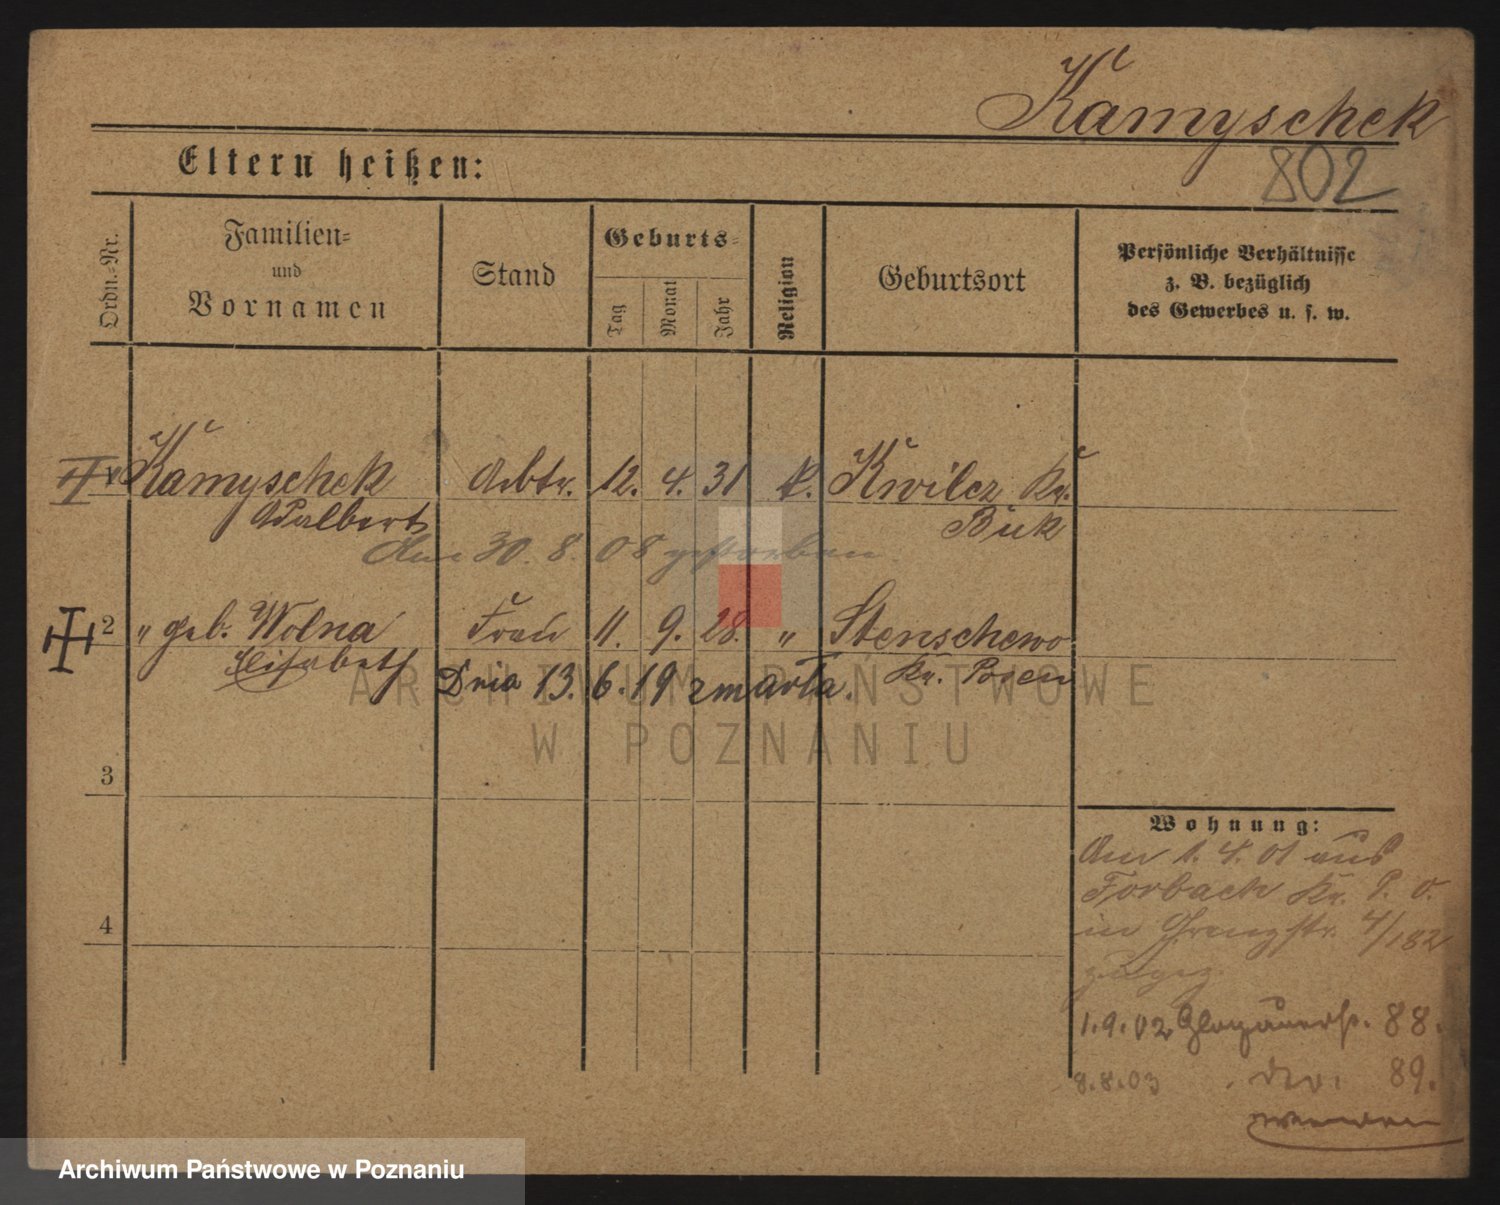 Kamyschek
Eltern heißen:
802
Ordn.-Nr.
Familien-
und
Vornamen
Stand
Geburts-
Tag
Monat
Jahr
Religion
Geburtsort
Persönliche Verhältnisse
z. B. bezüglich
des Gewerbes u. s. w.
Kamyschek Arbtr. 12. 4. 31 k. Kwilcz Kr.
Adalbert Buk
Am 30. 8. 08 gestorben.
2 " geb. Wolna Frau 11. 9. 28. " Stenschewo
Elisabeth Kr. Posen
Dnia 13. 6. 19 zmarła.
3
4
Wohnung:
Am 1. 4. 01 aus
Forbach Kr. P. O.
in Grenzstr. 4/182
zugez.
1.9.02 Glogauerstr. 88.
8.8.03 . do. 89.
wenden
ARCHIWUM PAŃSTWOWE
W POZNANIU
Archiwum Państwowe w Poznaniu